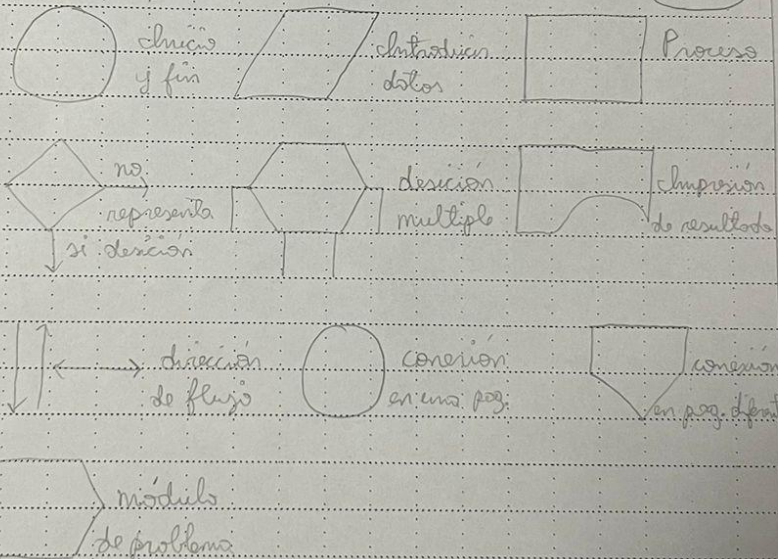 Inicio
y fin
Introducir
datos
Proceso
no
representa
si desición
desición
multiple
Impresión
de resultado
dirección
de flujo
conexión
en una pag.
conexión
en pag. diferent
módulo
de problema